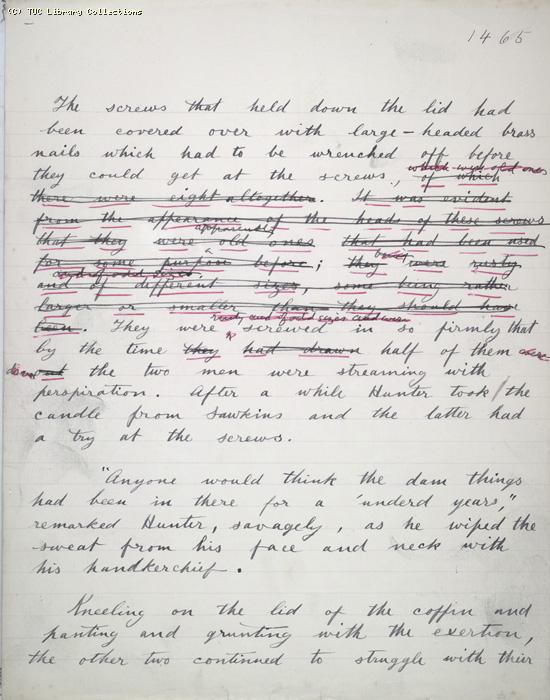 (C) TUC Library Collections
1465
The screws that held down the lid had
been covered over with large-headed brass
nails which had to be wrenched off before
which were old ones
they could get at the screws, of which
there were eight altogether. It was evident
from the appearance of the heads of these screws
apparently
that they were old ones that had been used
for some purpose before; they were rusty
and of odd sizes.
and of different sizes, some being rather
larger or smaller than they should have
been. They were screwed in so firmly that
rusty and of odd sizes and were
by the time they had drawn half of them were
down out the two men were streaming with
perspiration. After a while Hunter took the
candle from Sawkins and the latter had
a try at the screws.
"Anyone would think the dam things
had been in there for a 'underd years,"
remarked Hunter, savagely, as he wiped the
sweat from his face and neck with
his handkerchief.
Kneeling on the lid of the coffin and
panting and grunting with the exertion,
the other two continued to struggle with their